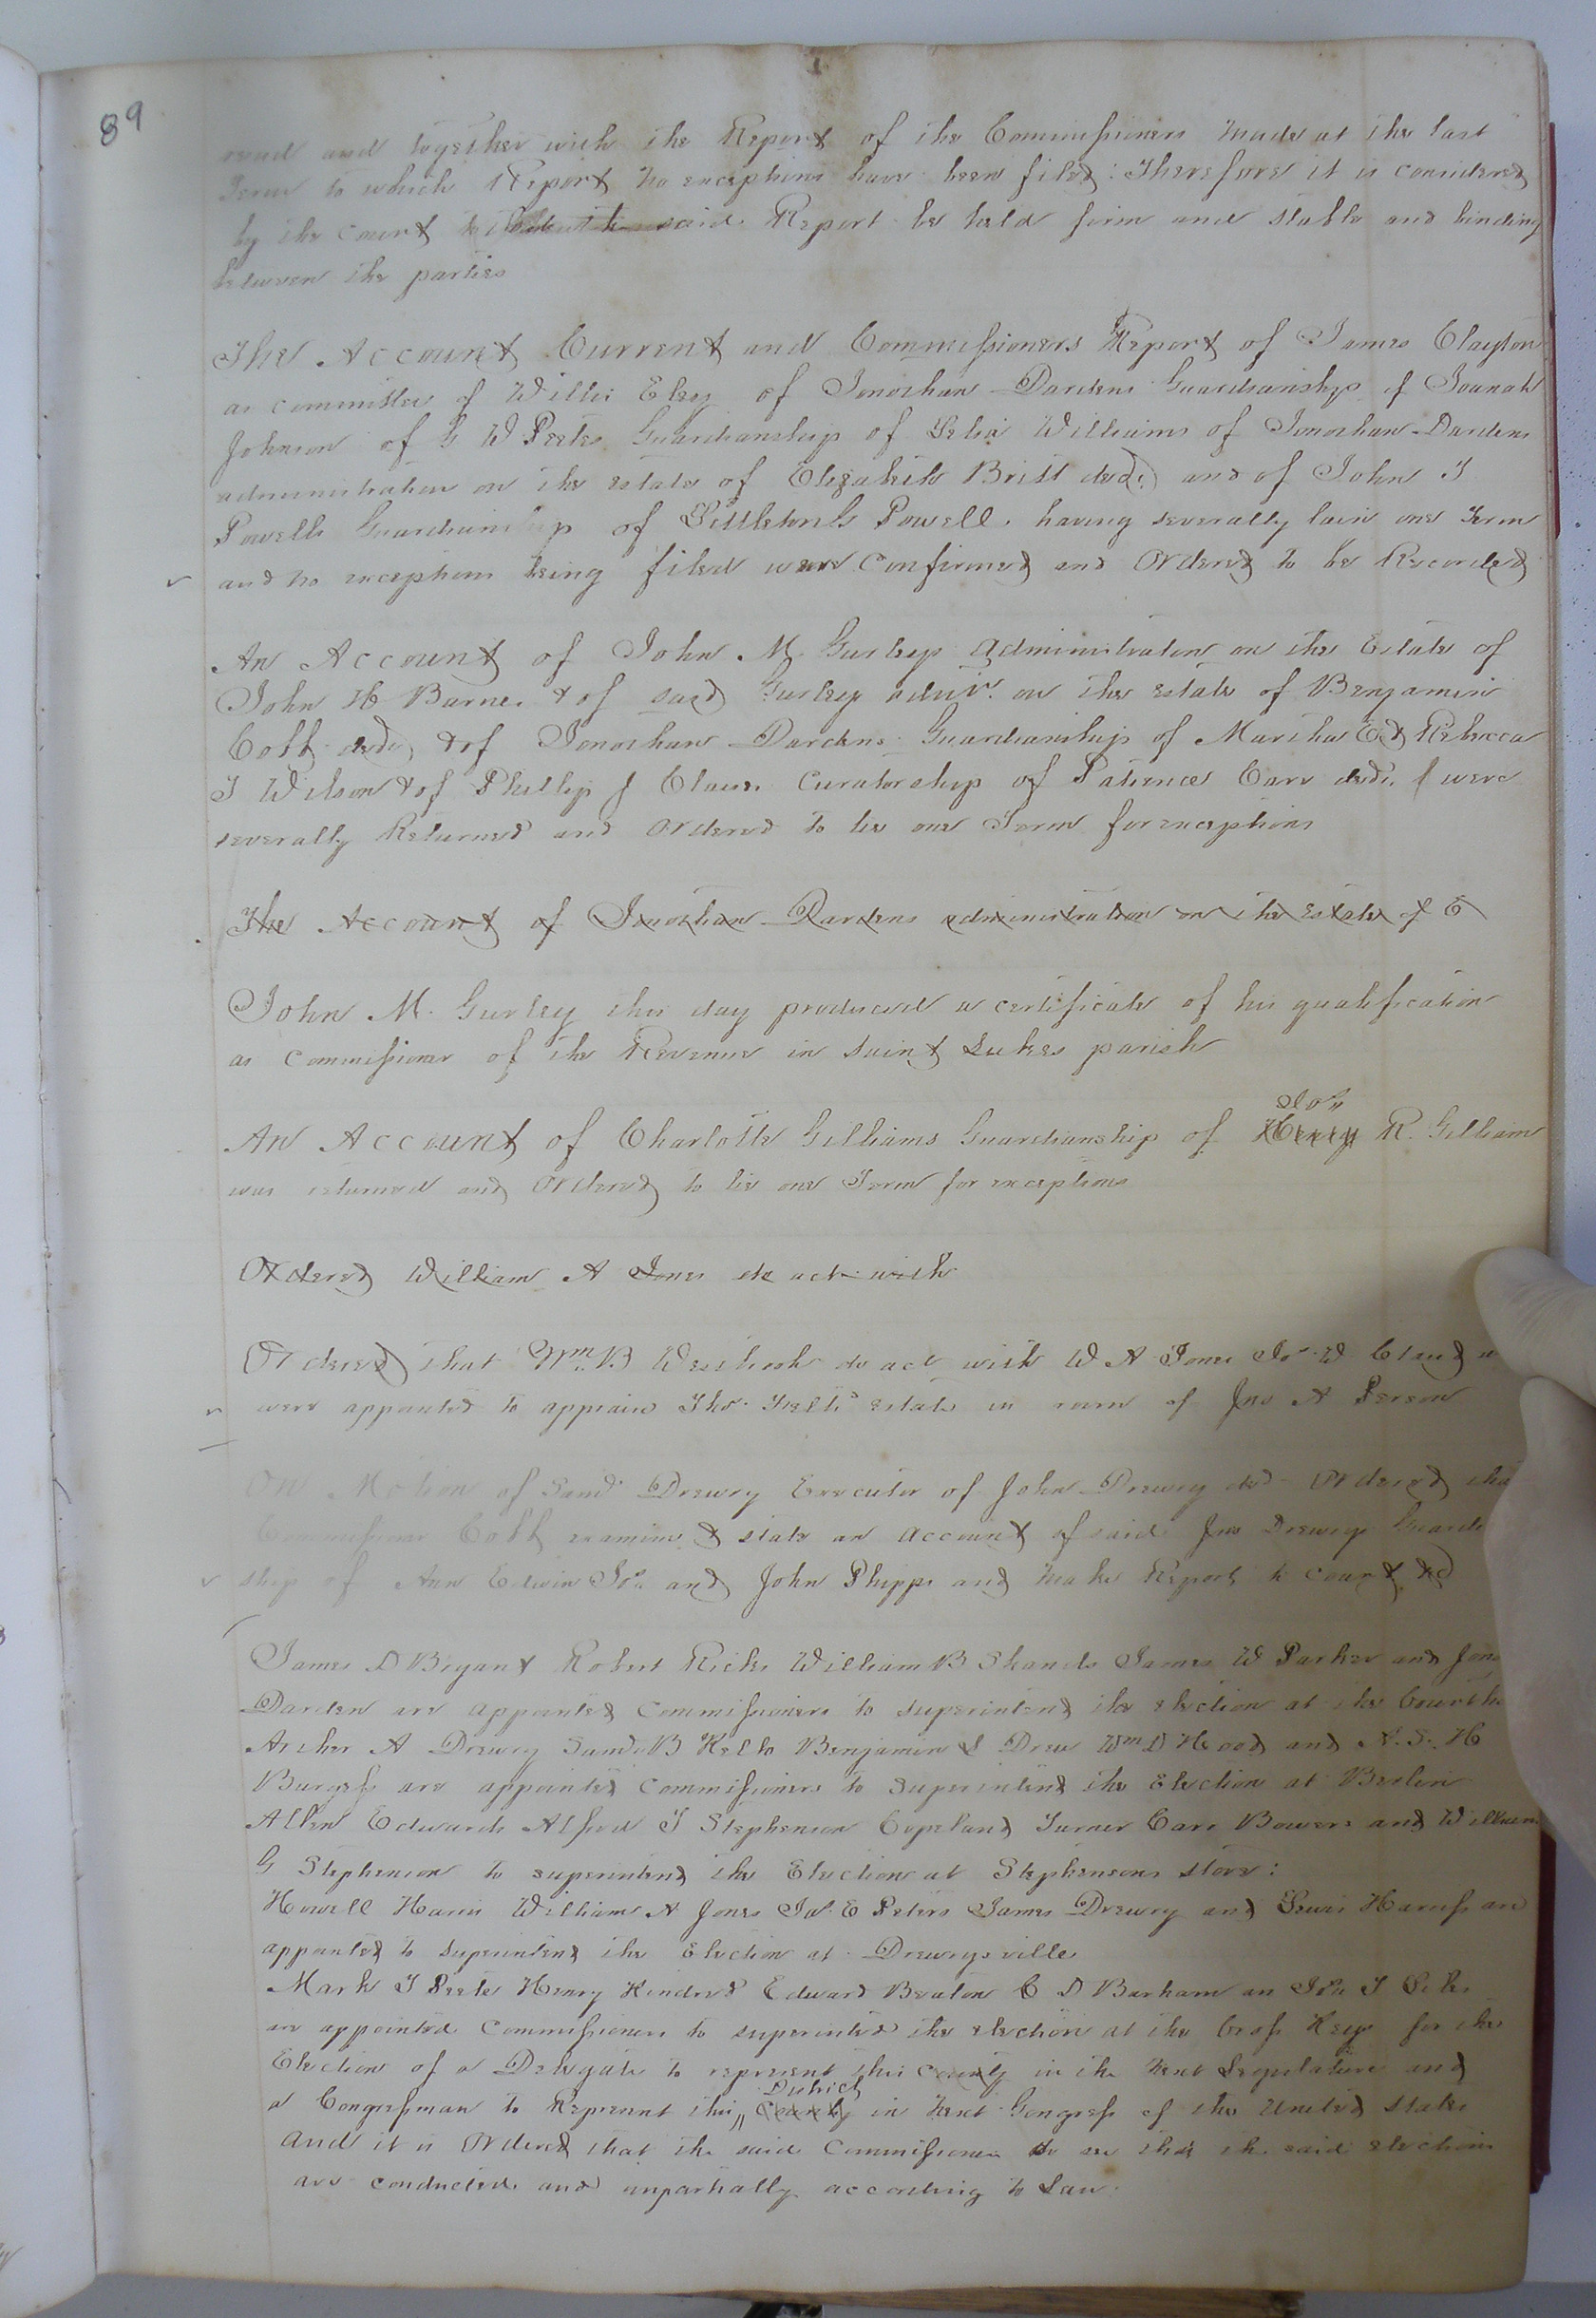 89
read and together with the Report of the Commissioners made at the last
Term to which Report no exceptions have been filed: Therefore it is considered
by the court that the said Report be held firm and stable and binding
between the parties
The Account Current and Commissioners Report of James Clayton
as committee of Willis Eley of Jonathan Dardens Guardianship of
Johnson of G W Peetes Guardianship of Williams of Jonathan Dardens
administration on the estate of Elizabeth Britt decd. and of John T
Powells Guardianship of Littleton G Powell. having severally lain one Term
and no exceptions being filed were Confirmed and Ordered to be Recorded
An Account of John M Gurley Administrator on the Estate of
John H Barnes & of said Gurley admr. on the estate of Benjamin
Cobb decd. & of Jonathan Dardens Guardianship of Martha E & Rebecca
J Wilson & of Phillip J Clauds Curatorship of Patience Carr decd. were
severally Returned and Ordered to lie one Term for exceptions
The Account of Jonathan Dardens administration on the Estate of E
John M. Gurley this day produced a certificate of his qualification
as commissioner of the Revenue in Saint Lukes parish
An Account of Charlotte Gilliams Guardianship of Henry R. Gilliam
was returned and Ordered to lie one Term for exceptions
Ordered William A Jones do act with
Ordered that Wm. B Westbrook do act with W A Jones Jos. W Claud
were appointed to appraise Tho. estate in room of Jno A Person
On Motion of Saml. Drewry Executor of John Drewry decd Ordered that
Commissioner Cobb examine & state an account of said Jno Drewry Guardi
ship of Ann Edwin and John Phipps and make Report to Court &c
James D Bryant Robert Ricks William B Shands James W Parker and Jona
Darden are appointed Commissioners to superintend the election at the Courtho
Archer A Drewry B Kello Benjamin L Drew Wm D Hood and A. S. H
Burgess are appointed Commissioners to Superintend the Election at Berlin
Allen Edwards Alfred T Stephenson Copeland Turner Carr Bowers and William
G Stephenson to superintend the Election at Stephensons store:
Howell Harris William A Jones Jos. E Peters James Drewry and Lewis Harriss are
appointed to superintend the Election at Drewrysville
Mark T Peete Henry Kindred Edward Beaton C D Barham an T
are appointed Commissioners to superinted the election at the Cross Keys for the
Election of a Delegate to represent this county in the next Legislature and
District
a Congressman to Represent this County in next Congress of the United States
And it is Ordered that the said Commissioners do see that the said elections
are conducted and impartially according to Law.